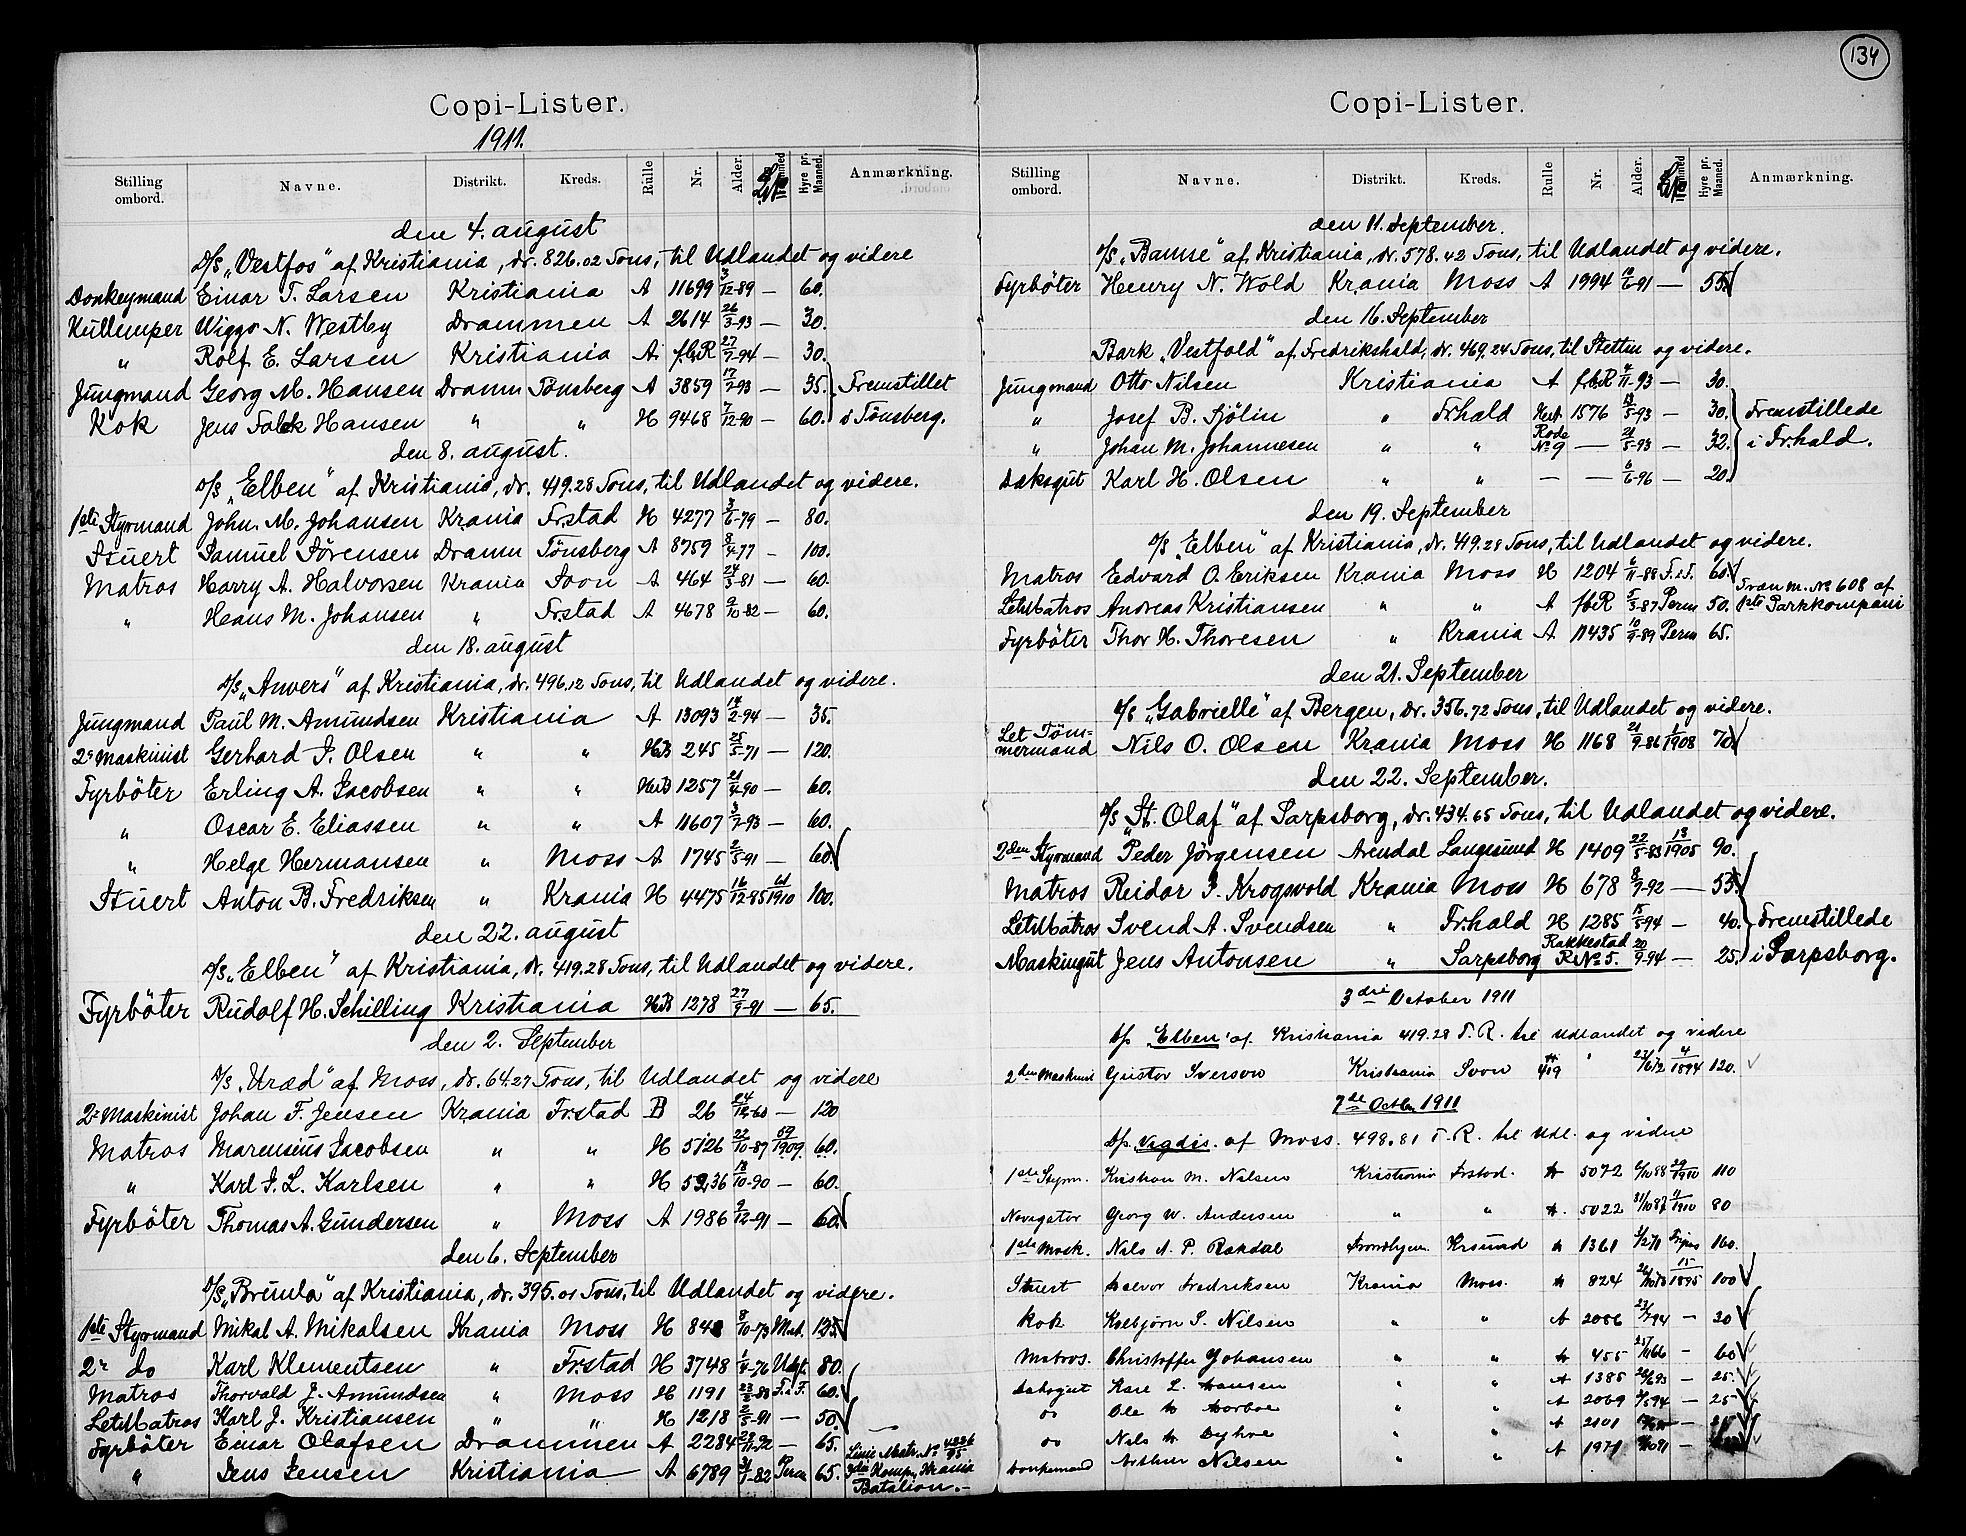 Copi-Lister.
1911.
Stilling ombord. Navne. Distrikt. Kreds. Rulle Nr. Alder. Hyre pr. Maaned. Anmærkning.
den 4. august
D/S „Vestfos" af Kristiania, dr. 826.02 Tons, til Udlandet og videre
Donkeymand Einar T. Larsen Kristiania A 11699 3/12-89 — 60.
Kullemper Wiggo N. Westby Drammen A 2614 26/3-93 — 30.
" Rolf E. Larsen Kristiania A fbR 27/9-94 — 30.
Jungmand Georg M. Hansen Dramm Tönsberg A 3859 17/7-93 — 35. Fremstillet
Kok Jens Falck Hansen " " H 9468 7/12-90 — 60. i Tönsberg.
den 8. august.
D/S „Elben" af Kristiania, dr. 419.28 Tons, til Udlandet og videre.
1ste Styrmand John. M. Johansen Krania Fr.stad H 4277 3/6-79 — 80.
Stuert Samuel Sørensen Dramm Tönsberg A 8759 8/4-77 — 100.
Matros Harry A. Halvorsen Krania Soon A 464 24/5-81 — 60.
" Hans M. Johansen " Fr.stad A 4678 9/10-82 — 60.
den 18. august
D/S „Anvers" af Kristiania, dr. 496.12 Tons, til Udlandet og videre.
Jungmand Paul M. Amundsen Kristiania A 13093 14/2-94 — 35.
2e Maskinist Gerhard I. Olsen " " HB 245 25/5-71 — 120.
Fyrböter Erling A. Jacobsen " " HB 1257 21/4-90 — 60.
" Oscar E. Eliassen " " A 11607 3/7-93 — 60.
" Helge Hermansen " Moss A 1745 2/5-91 — 60.
Stuert Anton B. Fredriksen " Krania H 4475 16/12-85 61/1910 100.
den 22. august
D/S „Elben" af Kristiania, dr. 419.28 Tons, til Udlandet og videre.
Fyrböter Rudolf H. Schilling Kristiania HB 1278 27/9-91 — 65.
den 2. September
D/S „Uræd" af Moss, dr. 64.27 Tons, til Udlandet og videre
2e Maskinist Johan F. Jensen Krania Fr.stad B 26 24/12-60 — 120
Matros Marensius Jacobsen " " H 5126 22/10-87 59/1909. 60.
" Karl I. L. Karlsen " " H 5236 18/10-90 — 60.
Fyrböter Thomas A. Gundersen " Moss A 1986 9/12-91 — 60.
den 6. September
D/S „Brumla" af Kristiania, dr. 395.01 Tons, til Udlandet og videre.
1ste Styrmand Mikal A. Mikalsen Krania Moss H 848 8/10-73 Mat. 125.
2e do Karl Klementsen " Fr.stad H 3748 1/4-76 Udgt. 80.
Matros Thorvald J. Amundsen " Moss H 1191 23/2-88 F.i F. 60.
LetMatros Karl J. Kristiansen " " H 1218 2/5-91 — 50.
Fyrböter Einar Olafsen Drammen A 2284 28/11-92 — 65. Linie Matr. No 4336/95
" Jens Jensen Kristiania A 6789 31/1-82 Perm 65. 3die Komp, Krania
Batalion.-
134
Copi-Lister.
Stilling ombord. Navne. Distrikt. Kreds. Rulle Nr. Alder. Hyre pr. Maaned. Anmærkning.
den 11. September.
D/S „Bamse" af Kristiania, dr. 578.42 Tons, til Udlandet og videre.
Fyrböter Henry N. Wold Krania Moss A 1994 /6-91 — 55.
den 16. September
Bark „Vestfold" af Fredrikshald, dr. 469.24 Tons, til Stettin og videre.
Jungmand Otto Nilsen Kristiania A fbR 4/11-93 — 30.
" Josef B. Sjölin " Fr.hald 1576 13/5-93 — 30. Fremstillede
" Johan M. Johannesen " " Rode No 9 — 21/5-93 — 32. i Fr.hald.
Dæksgut Karl H. Olsen " " — — 6/6-96 — 20.
den 19. September
D/S „Elben" af Kristiania, dr. 419.28 Tons, til Udlandet og videre.
Matros Edvard O. Eriksen Krania Moss H 1204 6/11-88 F.i F. 60.
LetMatros Andreas Kristiansen " " A fbR 5/3-87 Perm 50. Træn M. No 608 af 1ste Parkkompani
Fyrböter Thor H. Thoresen " Krania A 11435 10/9-89 Perm 65.
den 21. September
D/S „Gabrielle" af Bergen, dr. 356.72 Tons, til Udlandet og videre.
Let Töm-
mermand Nils O. Olsen Krania Moss H 1168 21/9-86 1/1908 70.
den 22. September.
D/S „St. Olaf" af Sarpsborg, dr. 434.65 Tons, til Udlandet og videre.
2den Styrmand Peder Jörgensen Arendal Langesund H 1409 22/5-83 13/1905 90.
Matros Reidar I. Krogsvold Krania Moss H 678 8/7-92 — 55.
LetMatros Svend A. Svendsen " Fr.hald H 1285 15/5-94 — 40. Fremstillede
Maskingut Jens Antonsen " Sarpsborg Rakkestad R No 5. 20/9-94 — 25. i Sarpsborg.
3die October 1911
D/S Elben af Kristiania 419.28 T. R. til Udlandet og videre
2den Maskinist Gustav Iverson Kristiania Soon 419 " 23/6 72 4/1894 120.
7de Octbr. 1911
D/S Vigdis. af Moss. 498.81 T. R. til Udl. og videre
1ste Styrm. Kristian M. Nilsen Kristiania Frstad. H 5072 6/10 88 29/1910 110
Navigatør Georg W. Andersen " " H. 5022 31/10 87 4/1910 80
1ste Mask. Nils A. P. Rakdal Trondhjem Krsund H 1361 1/2 71 160.
Stuert Halvor Fredriksen Krania Moss. H 824 26/10 73 15/1895 100
Kok Kolbjørn S. Nilsen " " A 2086 23/7 94 — 30
Matros. Christoffer Johansen " " H 455 25/11 66 — 60
Daksgut Kare L. Hansen " " A 1385 20/6 93 — 25.
do Ole H Horboe " " A 2069 7/5 94 — 25
do Nils H Dyhre " " A 2101
Donkemand Arthur Nilsen " " A 1971